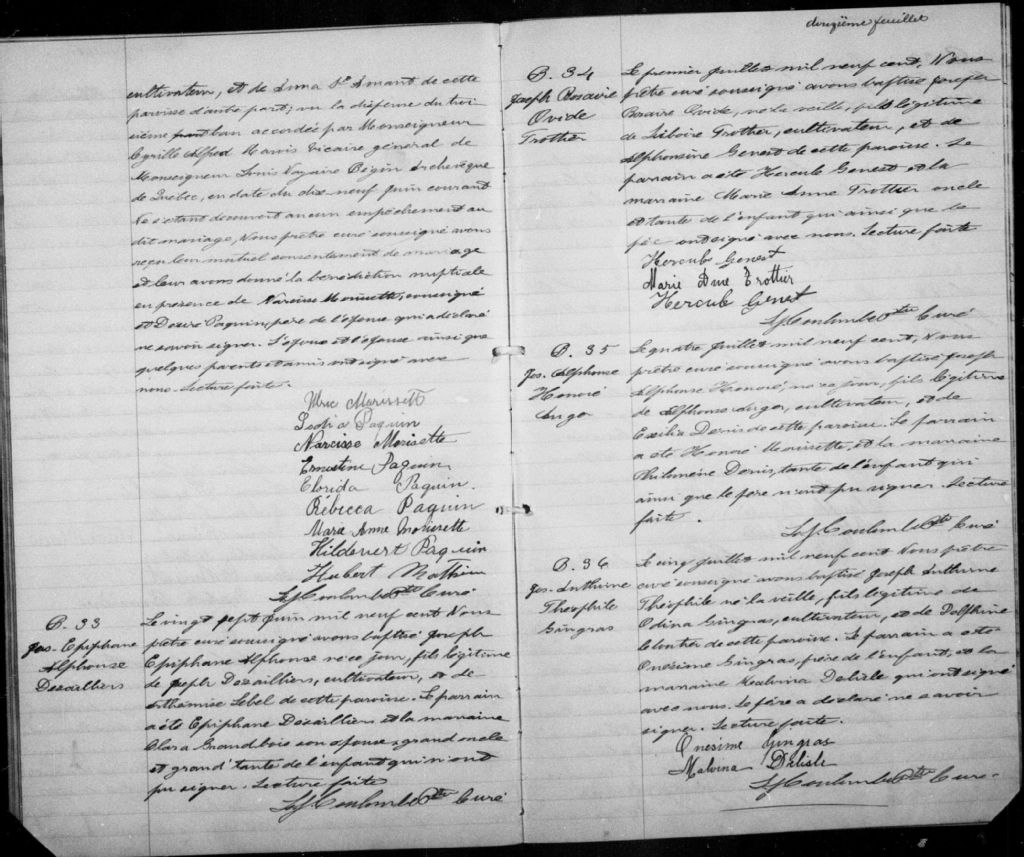 cultivateur, et de Anna St Amant de cette
paroisse d'autre part; vu la dispense du troi
sième ban accordée par Monseigneur
Cyrille Alfred Marois Vicaire général de
Monseigneur Louis Nazaire Bégin Archevêque
de Québec, en date du dix neuf juin courant
Ne s'étant découvert aucun empêchement au
dit mariage, Nous prêtre curé soussigné avons
reçu leur mutuel consentement de mariage
et leur avons donné la bénédiction nuptiale
en présence de Narcisse Morissette, soussigné
et Désiré Paquin, père de l'épouse qui a déclaré
ne savoir signer. L'époux et l'épouse ainsi que
quelques parents et amis ont signé avec
nous. Lecture faite.
Morissette
Paquin
Narcisse Morisette
Ernestine Paquin
Florida Paquin.
Rébecca Paquin
Marie Anne Morissette
Hildevert Paquin
Hubert Mathieu
Coulombe Ptre Curé
B. 33
Jos. Epiphane
Alphonse
Desailliers
Le vingt sept juin mil neuf cent Nous
prêtre curé soussigné avons baptisé Joseph
Epiphane Alphonse né ce jour, fils légitime
de Joseph Desailliers, cultivateur, et de
Arthémise Lebel de cette paroisse. Le parrain
a été Epiphane Desailliers et la marraine
Clara Grandbois son épouse, grand oncle
et grand'tante de l'enfant qui n'ont
pu signer. Lecture faite
Coulombe Ptre Curé
deuxième feuillet
B. 34
Joseph Rosaire
Ovide
Trottier
Le premier juillet mil neuf cent, Nous
prêtre curé soussigné avons baptisé Joseph
Rosaire Ovide, né la veille, fils légitime
de Liboire Trottier, cultivateur, et de
Alphonsine Genest de cette paroisse. Le
parrain a été Hercule Genest et la
marraine Marie Anne Trottier oncle
et tante de l'enfant qui ainsi que le
père ont signé avec nous. Lecture faite
Hercule Genest
Marie Ane Trottier
Hercule Genest
Coulombe Ptre Curé
B. 35
Jos. Alphonse
Honoré
Auger
Le quatre juillet mil neuf cent, Nous
prêtre curé soussigné avons baptisé Joseph
Alphonse Honoré, né ce jour, fils légitime
de Alphonse Auger, cultivateur, et de
Exilia Denis de cette paroisse. Le parrain
a été Honoré Morissette, et la marraine
Philomène Denis, tante de l'enfant qui
ainsi que le père n'ont pu signer. Lecture
faite.
Coulombe Ptre Curé
B. 36
Jos. Luthime
Théophile
Gingras
Le cinq juillet mil neuf cent Nous prêtre
curé soussigné avons baptisé Joseph
Théophile né la veille, fils légitime de
Odina Gingras, cultivateur, et de Delphine
de cette paroisse. Le parrain a été
Onésime Gingras, frère de l'enfant, et la
marraine Malvina Delisle qui ont signé
avec nous. Le père a déclaré ne savoir
signer. Lecture faite.
Onesime Gingras
Malvina Delisle
Coulombe Ptre Curé.